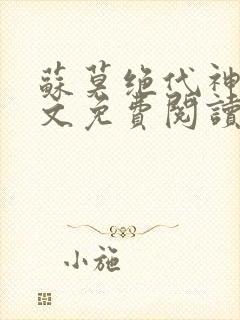 蘇莫绝代神
文免費閱讀
小施